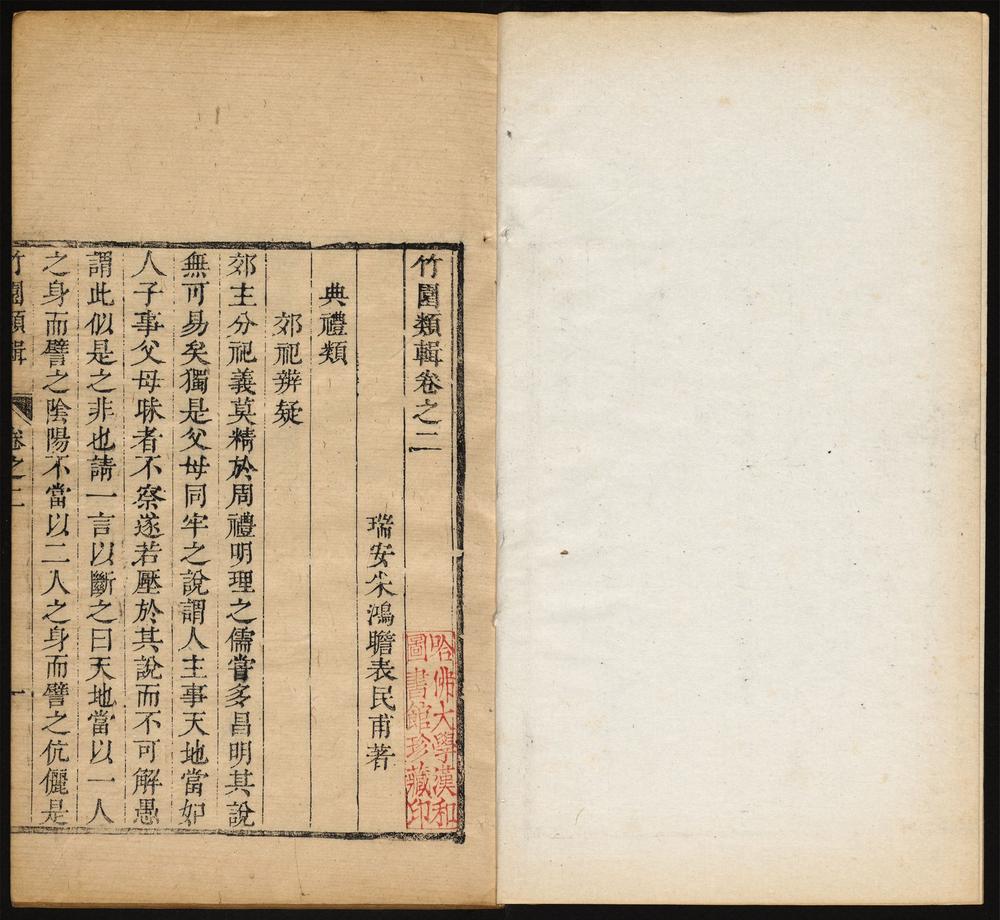 竹園類輯卷之二
瑞安朱鴻瞻表民甫著
典禮類
郊祀辨疑
郊主分祀義莫精於周禮明理之儒嘗多昌明其說
無可易矣獨是父母同牢之說謂人主事天地當如
人子事父母昧者不察遂若壓於其說而不可解愚
謂此似是之非也請一言以斷之曰天地當以一人
之身而譬之陰陽不當以二人之身而譬之伉儷是
竹園類輯
卷之二
一
哈佛大學漢和
圖書館珍藏印